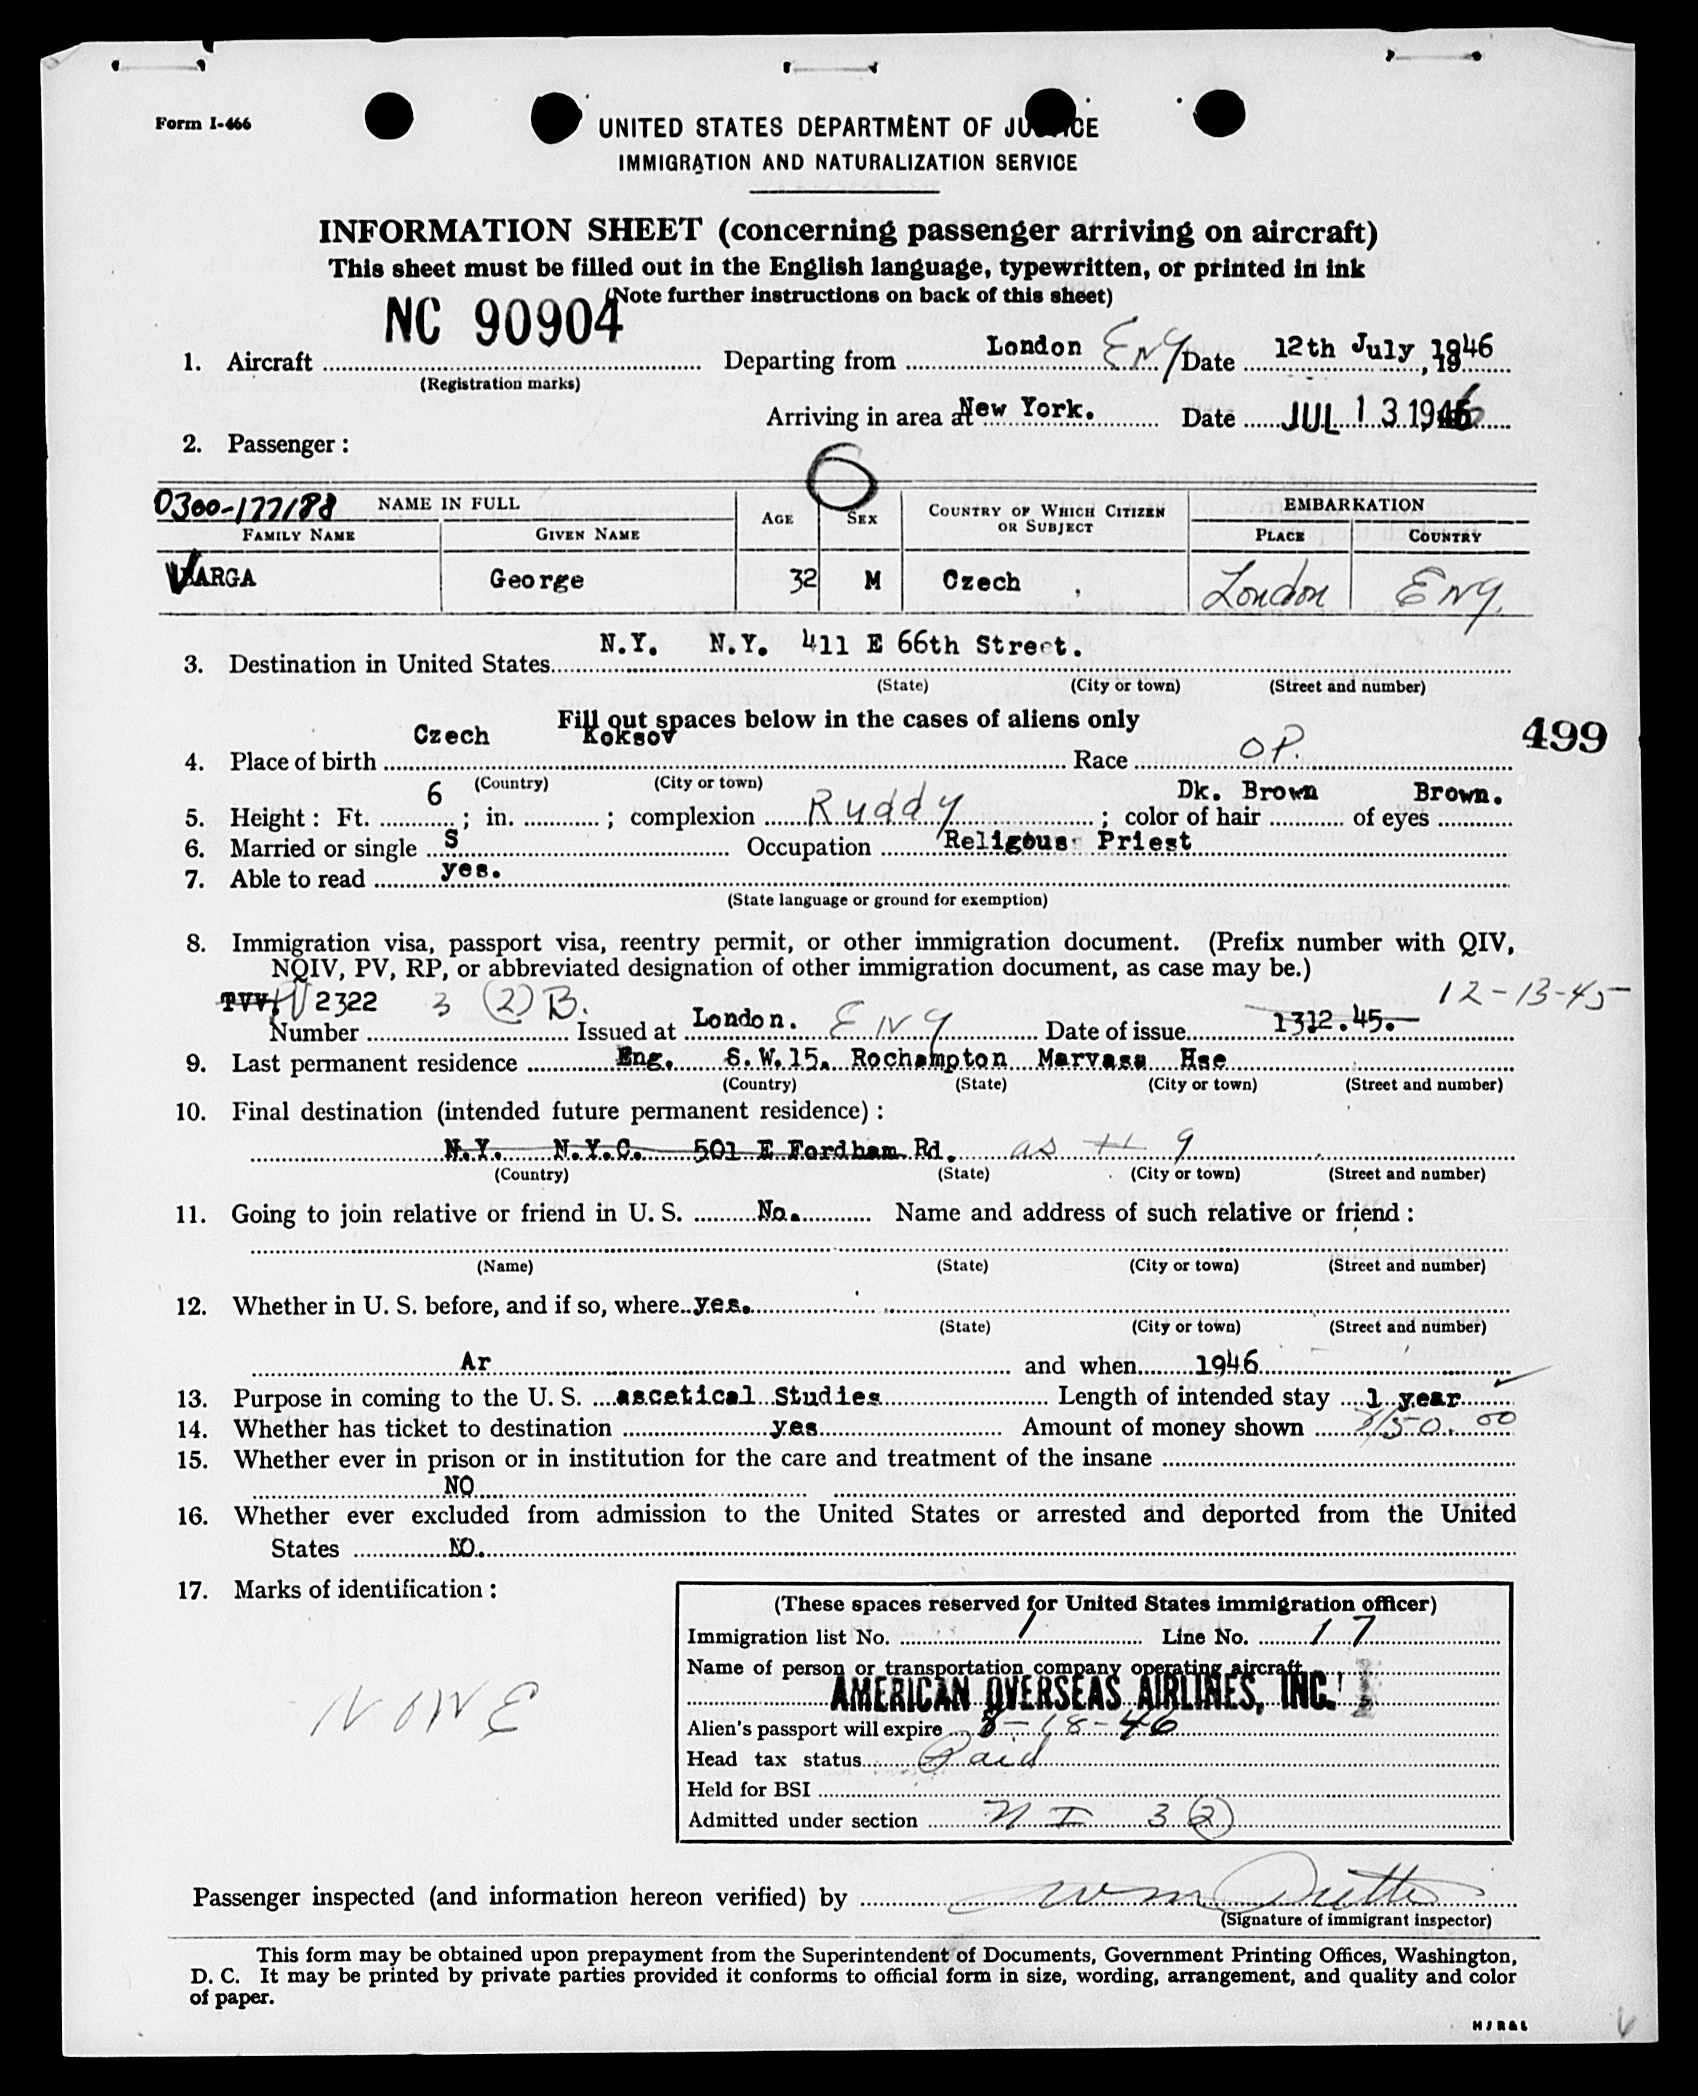 Form I-466
UNITED STATES DEPARTMENT OF JUSTICE
IMMIGRATION AND NATURALIZATION SERVICE
INFORMATION SHEET (concerning passenger arriving on aircraft)
This sheet must be filled out in the English language, typewritten, or printed in ink
(Note further instructions on back of this sheet)
1. Aircraft NC 90904 Departing from London Eng Date 12th July, 1946
(Registration marks)
Arriving in area at New York. Date JUL 13 1946
2. Passenger:
6
0300-177188 NAME IN FULL AGE SEX COUNTRY OF WHICH CITIZEN OR SUBJECT EMBARKATION
FAMILY NAME GIVEN NAME PLACE COUNTRY
VARGA George 32 M Czech London Eng.
3. Destination in United States N.Y. N.Y. 411 E 66th Street.
(State) (City or town) (Street and number)
Fill out spaces below in the cases of aliens only
499
4. Place of birth Czech Koksov Race OP.
(Country) (City or town)
5. Height: Ft. 6; in. ; complexion Ruddy; color of hair Dk. Brown of eyes Brown.
6. Married or single S Occupation Religous Priest
7. Able to read yes.
(State language or ground for exemption)
8. Immigration visa, passport visa, reentry permit, or other immigration document. (Prefix number with QIV,
NQIV, PV, RP, or abbreviated designation of other immigration document, as case may be.)
12-13-45
Number 2322 3 (2) B. Issued at London. Eng Date of issue 1312.45.
9. Last permanent residence Eng. S.W.15. Rochampton Marvasa Hse
(Country) (State) (City or town) (Street and number)
10. Final destination (intended future permanent residence):
N.Y. N.Y.C. 501 E Fordham Rd. as # 9
(Country) (State) (City or town) (Street and number)
11. Going to join relative or friend in U. S. No. Name and address of such relative or friend:
(Name) (State) (City or town) (Street and number)
12. Whether in U. S. before, and if so, where yes.
(State) (City or town) (Street and number)
Ar and when 1946
13. Purpose in coming to the U. S. ascetical Studies Length of intended stay 1 year
14. Whether has ticket to destination yes Amount of money shown $150.00
15. Whether ever in prison or in institution for the care and treatment of the insane
NO
16. Whether ever excluded from admission to the United States or arrested and deported from the United
States NO.
17. Marks of identification:
NONE
(These spaces reserved for United States immigration officer)
Immigration list No. 1 Line No. 17
Name of person or transportation company operating aircraft
AMERICAN OVERSEAS AIRLINES, INC.
Alien's passport will expire 8-18-46
Head tax status Paid
Held for BSI
Admitted under section NI 3 (2)
Passenger inspected (and information hereon verified) by
(Signature of immigrant inspector)
This form may be obtained upon prepayment from the Superintendent of Documents, Government Printing Offices, Washington,
D. C. It may be printed by private parties provided it conforms to official form in size, wording, arrangement, and quality and color
of paper.